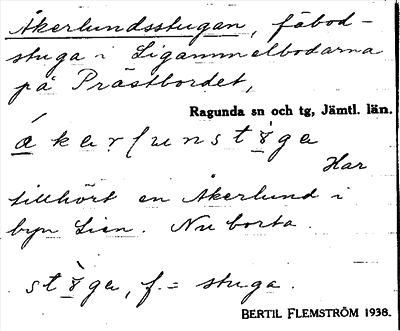 Åkerlundsstugan, fäbod-
stuga i Ligammelbodarna
på Prästbordet,
Ragunda sn och tg, Jämtl. län.
Har
tillhört en Åkerlund i
byn Lien. Nu borta.
f. = stuga.
BERTIL FLEMSTRÖM 1938.